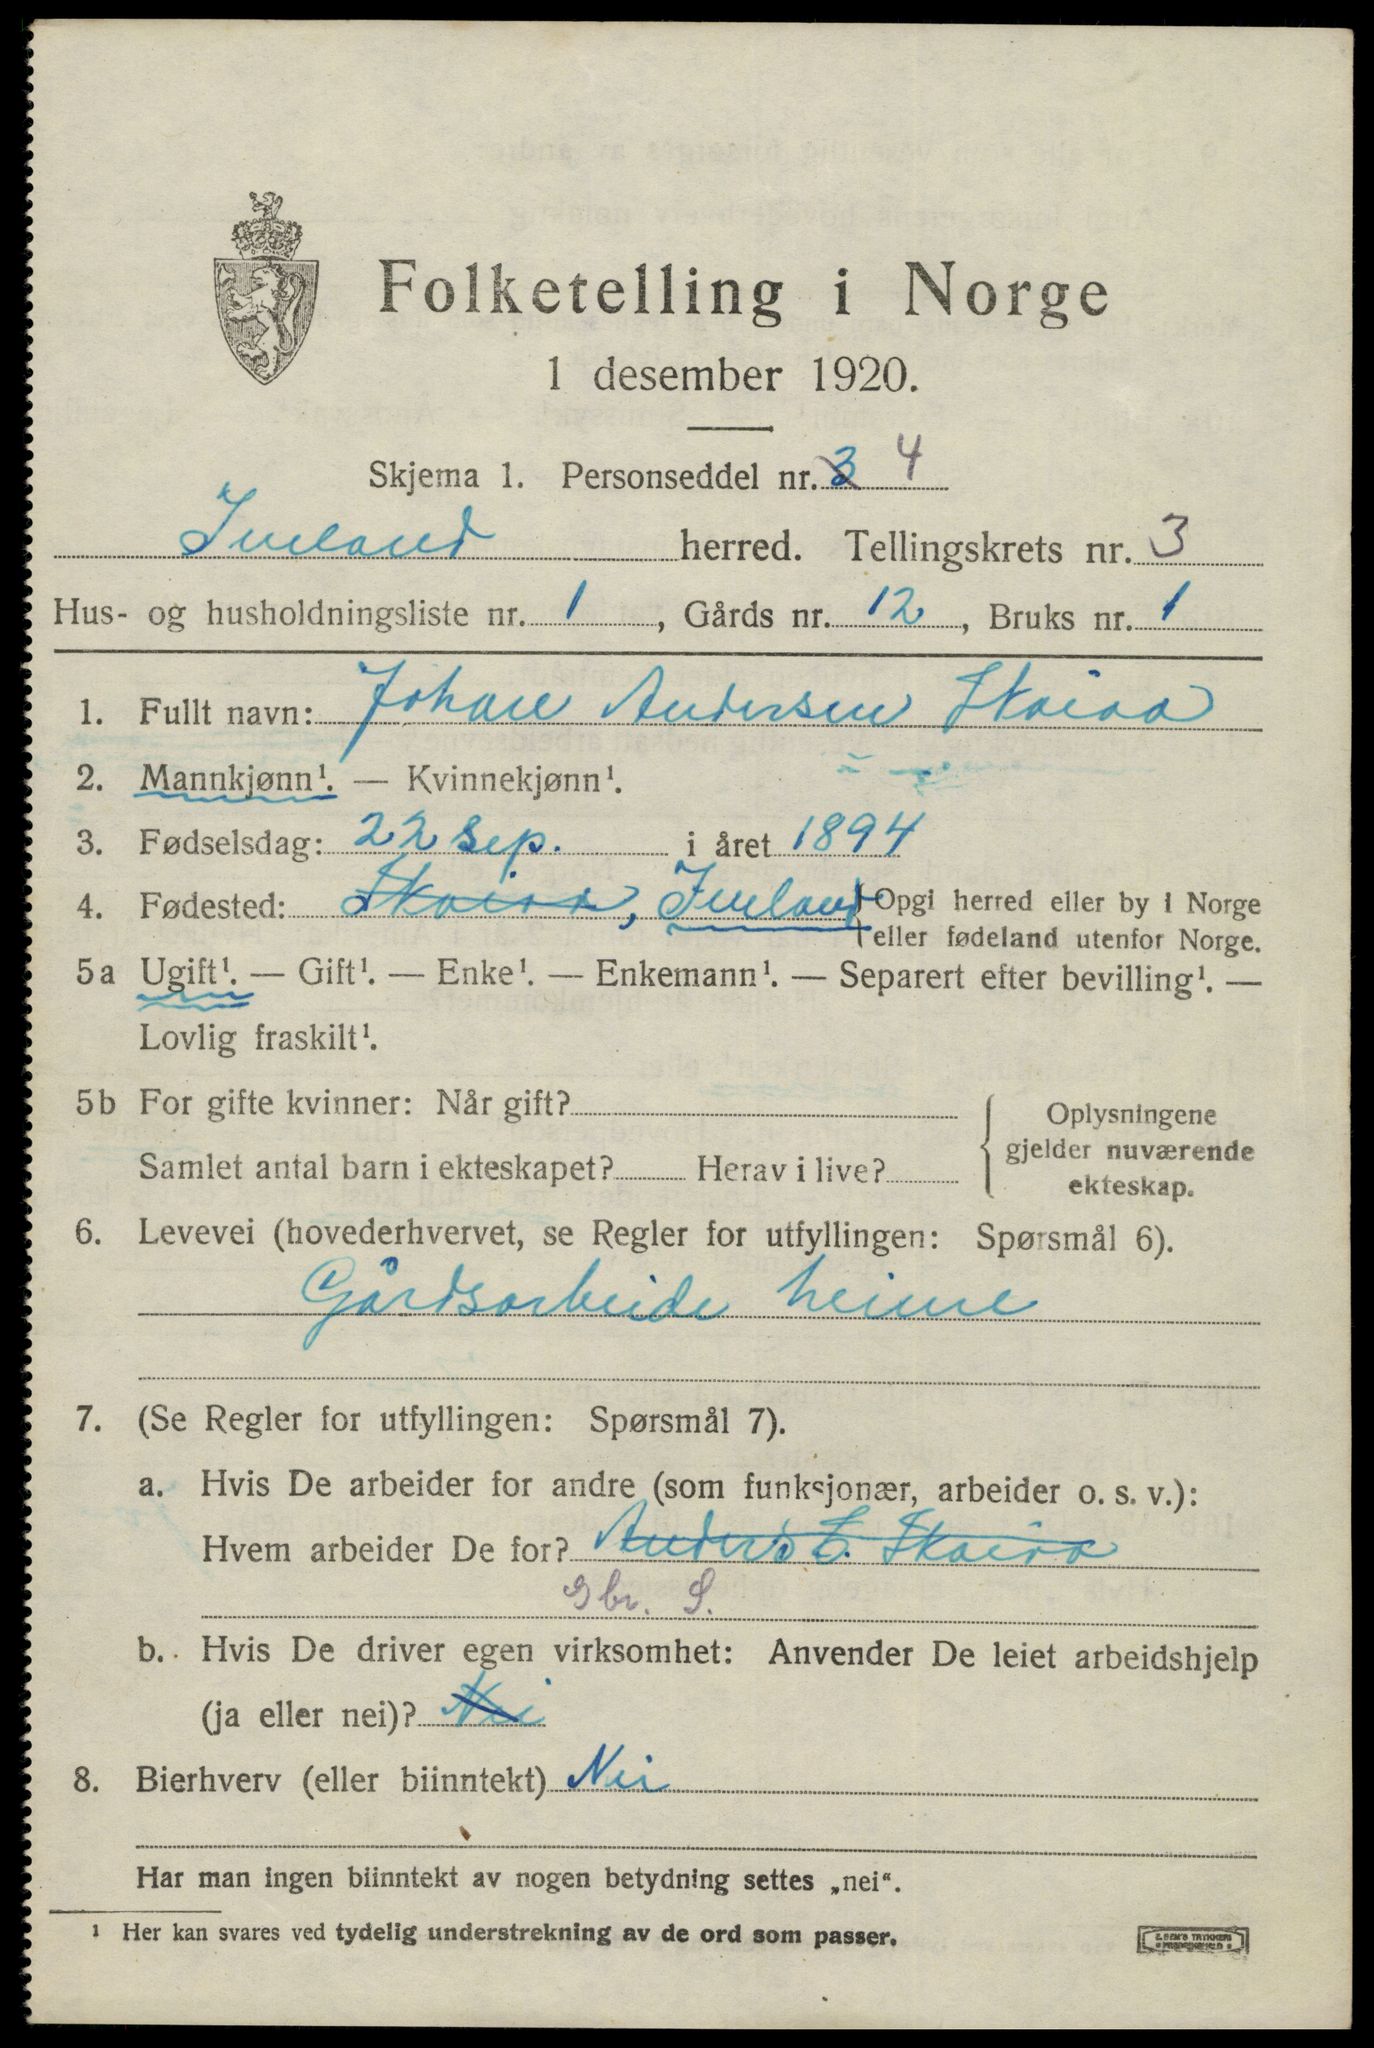 Folketelling i Norge
1 desember 1920.
Skjema 1. Personseddel nr. 3 4
Iveland herred. Tellingskrets nr. 3
Hus- og husholdningsliste nr. 1, Gårds nr. 12, Bruks nr. 1
1. Fullt navn: Johan Andersen Skaiaa
2. Mannkjønn¹. — Kvinnekjønn¹.
3. Fødselsdag: 22 sep. i året 1894
4. Fødested: Skaiaa, Iveland { Opgi herred eller by i Norge
eller fødeland utenfor Norge.
5a Ugift¹. — Gift¹. — Enke¹. — Enkemann¹. — Separert efter bevilling¹. —
Lovlig fraskilt¹.
5b For gifte kvinner: Når gift?
Samlet antal barn i ekteskapet? Herav i live?
{ Oplysningene
gjelder nuværende
ekteskap.
6. Levevei (hovederhvervet, se Regler for utfyllingen: Spørsmål 6).
Gårdsarbeide heime
7. (Se Regler for utfyllingen: Spørsmål 7).
a. Hvis De arbeider for andre (som funksjonær, arbeider o. s. v.):
Hvem arbeider De for? Anders E. Skaiaa
Gbr. S.
b. Hvis De driver egen virksomhet: Anvender De leiet arbeidshjelp
(ja eller nei)? Nei
8. Bierhverv (eller biinntekt) Nei
Har man ingen biinntekt av nogen betydning settes „nei“.
¹ Her kan svares ved tydelig understrekning av de ord som passer.